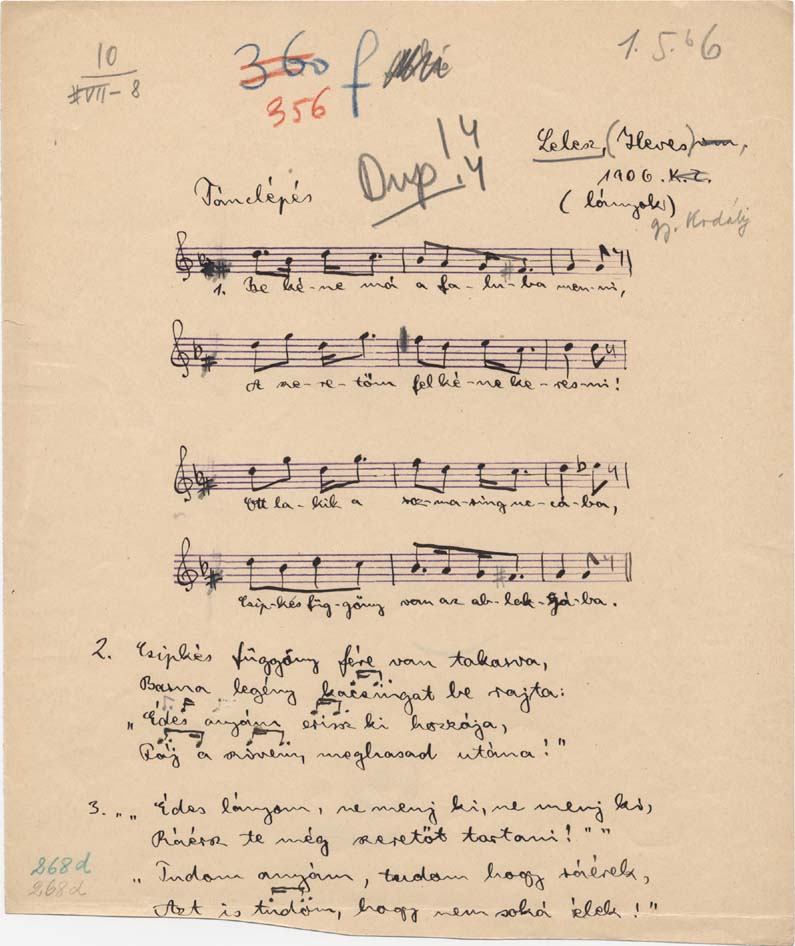 10
#VII-8
360 f
356
1.5.6 6
14
Dup. 4
Lelesz, (Heves)
1906. K.Z.
(lányok)
gy. Kodály
Tánclépés
1. Be ké-ne má a fa-lu-ba men-ni,
A sze-re-tőm fel ké-ne ke-rés-ni!
Ott la-kik a roz-ma-ring ne-cá-ba,
Csip-kés füg-göny van az ab-lak-gyá-ba.
2. Csipkés függöny fére van takarva,
Barna legény kacsingat be rajta:
„Édes anyám erissz ki hozzája,
Fáj a szövem, meghasad utána!"
3. „„Édes lányom, ne menj ki, ne menj ki,
Ráérsz te még szeretőt tartani!""
„Tudom anyám, tudom hogy ráérek,
Azt is tudom, hogy nem soká élek!"
268d
268d